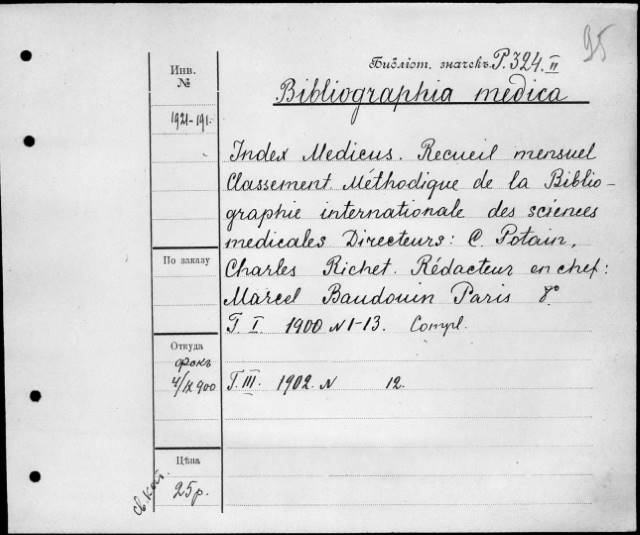 95
Библіот. значекъ P. 324. II
Bibliographia medica
Инв.
№
1921-191.
Index Medicus. Recueil mensuel
Classement Méthodique de la Biblio-
graphie internationale des sciences
medicales Directeurs: C. Potain,
Charles Richet. Rédacteur en chef:
Marcel Baudouin Paris 8°.
T. I. 1900 N 1-13. Compl.
T. III. 1902. N 12.
По заказу
Откуда
4/IX 900
Цѣна
25р.
св. кат.